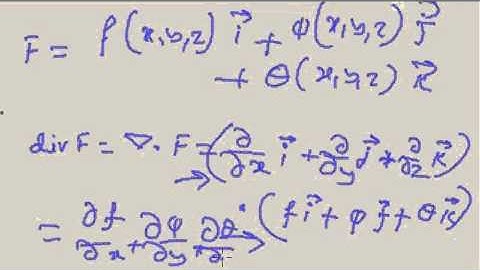 F = f(x,y,z) i⃗ + φ(x,y,z) j⃗
+ θ(x,y,z) k⃗
div F = ∇. F = (∂/∂x i⃗ + ∂/∂y j⃗ + ∂/∂z k⃗)
. (f i⃗ + φ j⃗ + θ k⃗)
= ∂f/∂x + ∂φ/∂y + ∂θ/∂